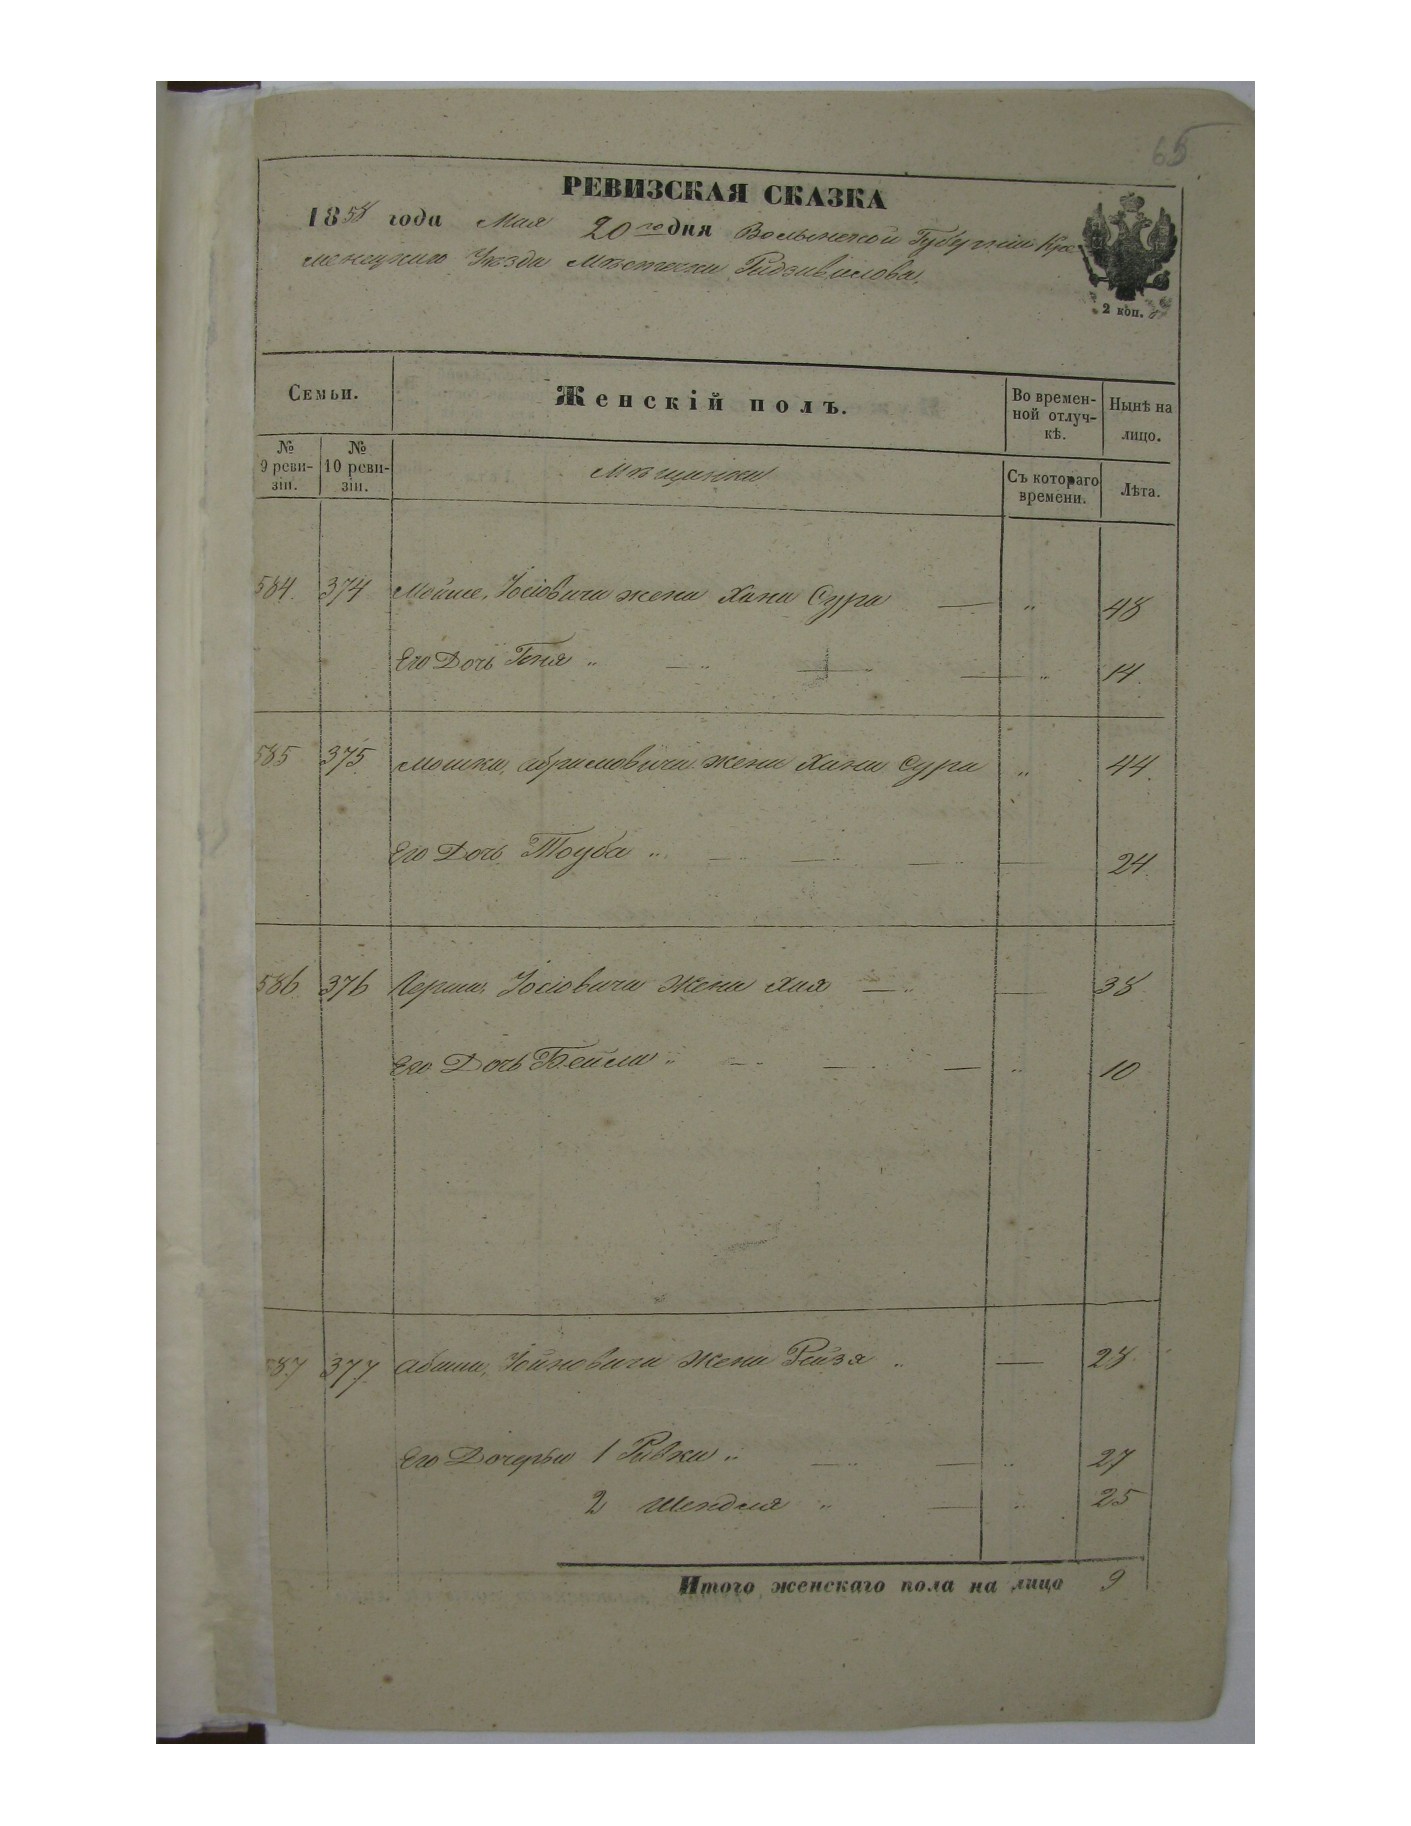 65
РЕВИЗСКАЯ СКАЗКА
1858 года Мая 20го дня Волынской Губерніи Кре-
менецкаго Уѣзда Мѣстечка Радзивилова.
2 коп.
Семьи.
Женскій полъ.
Во времен-
ной отлуч-
кѣ.
Нынѣ на
лицо.
№
9 реви-
зіи.
№
10 реви-
зіи.
Мѣщанки
Съ котораго
времени.
Лѣта.
584. 374 Мойше, Іосіовича жена Хана Сура — „ 48
Его Дочь Геня „ — „ — „ — „ 14.
585 375 Мошка, Абрамовича жена Хана Сура „ 44.
Его Дочь Тоуба „ — „ — „ — „ — 24
586 376 Герша, Іосіовича Жена Хая — „ — 38
Его Дочь Бейла „ — „ — „ — „ 10
587 377 Абаша, Іойновича Жена Рейзя „ — 28
Его Дочерьи 1 Ривка „ — „ — „ 27
2 Шендля „ — „ 25
Итого женскаго пола на лицо 9